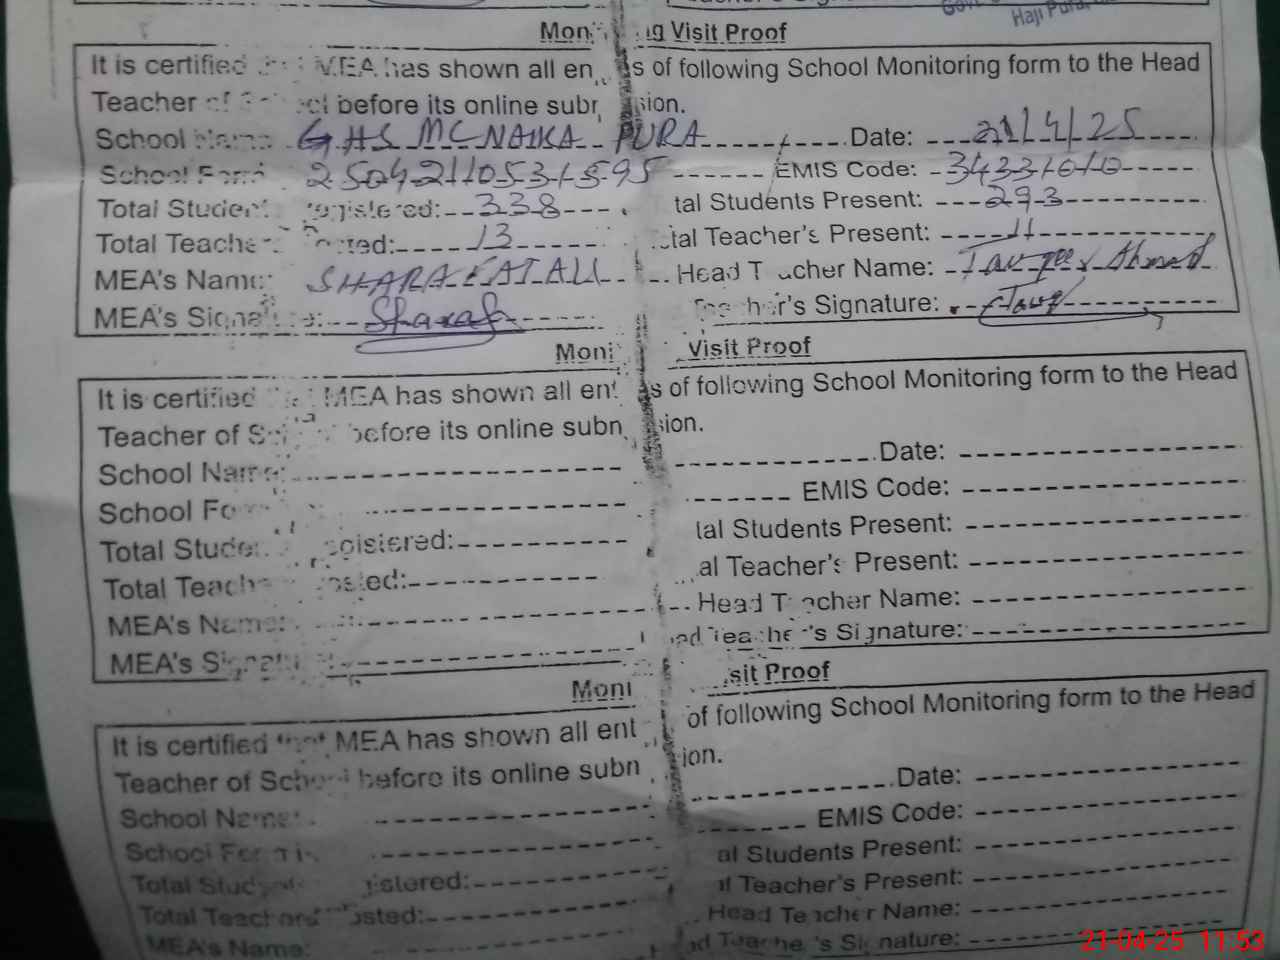 Haji Pura,
Visit Proof
It is certified MEA has shown all of following School Monitoring form to the Head
Teacher before its online
School Name GHS MC NAIKA PURA Date: 21/4/25
School Form 25042110531595 EMIS Code: 34331010
Total Students registered: 338 Students Present: 293
Total Teacher Posted: 13 Total Teacher's Present: 11
MEA's Name: SHARAFAT ALI Head Teacher Name: Ahmad
MEA's Signature: Sharafat Teacher's Signature:
Visit Proof
It is certified MEA has shown all of following School Monitoring form to the Head
Teacher of before its online
School Name: Date:
School EMIS Code:
Total Student registered: Students Present:
Total Teacher Posted: Teacher's Present:
MEA's Name: Head Teacher Name:
MEA's Signature: Head Teacher's Signature:
Visit Proof
It is certified that MEA has shown all of following School Monitoring form to the Head
Teacher of School before its online
School Name: Date:
School Form EMIS Code:
Total Students registered: Students Present:
Total Teachers Posted: Teacher's Present:
MEA's Name: Head Teacher Name:
Teacher's Signature:
21-04-25 11:53